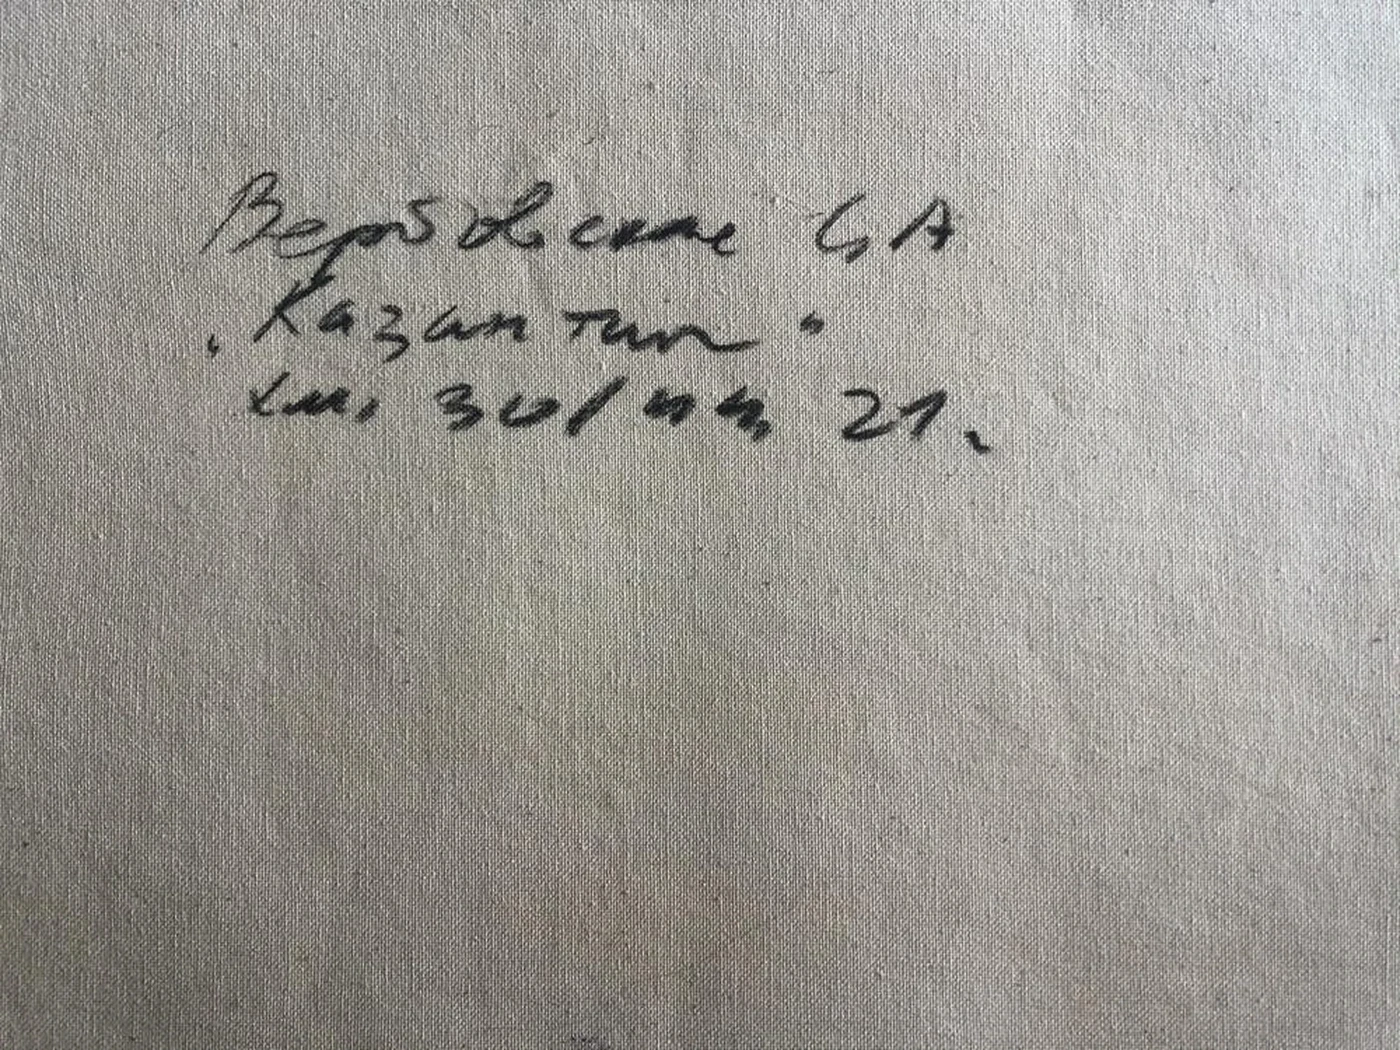 Вербовская С, А
"Казантип"
х.м, 30/40, 21.